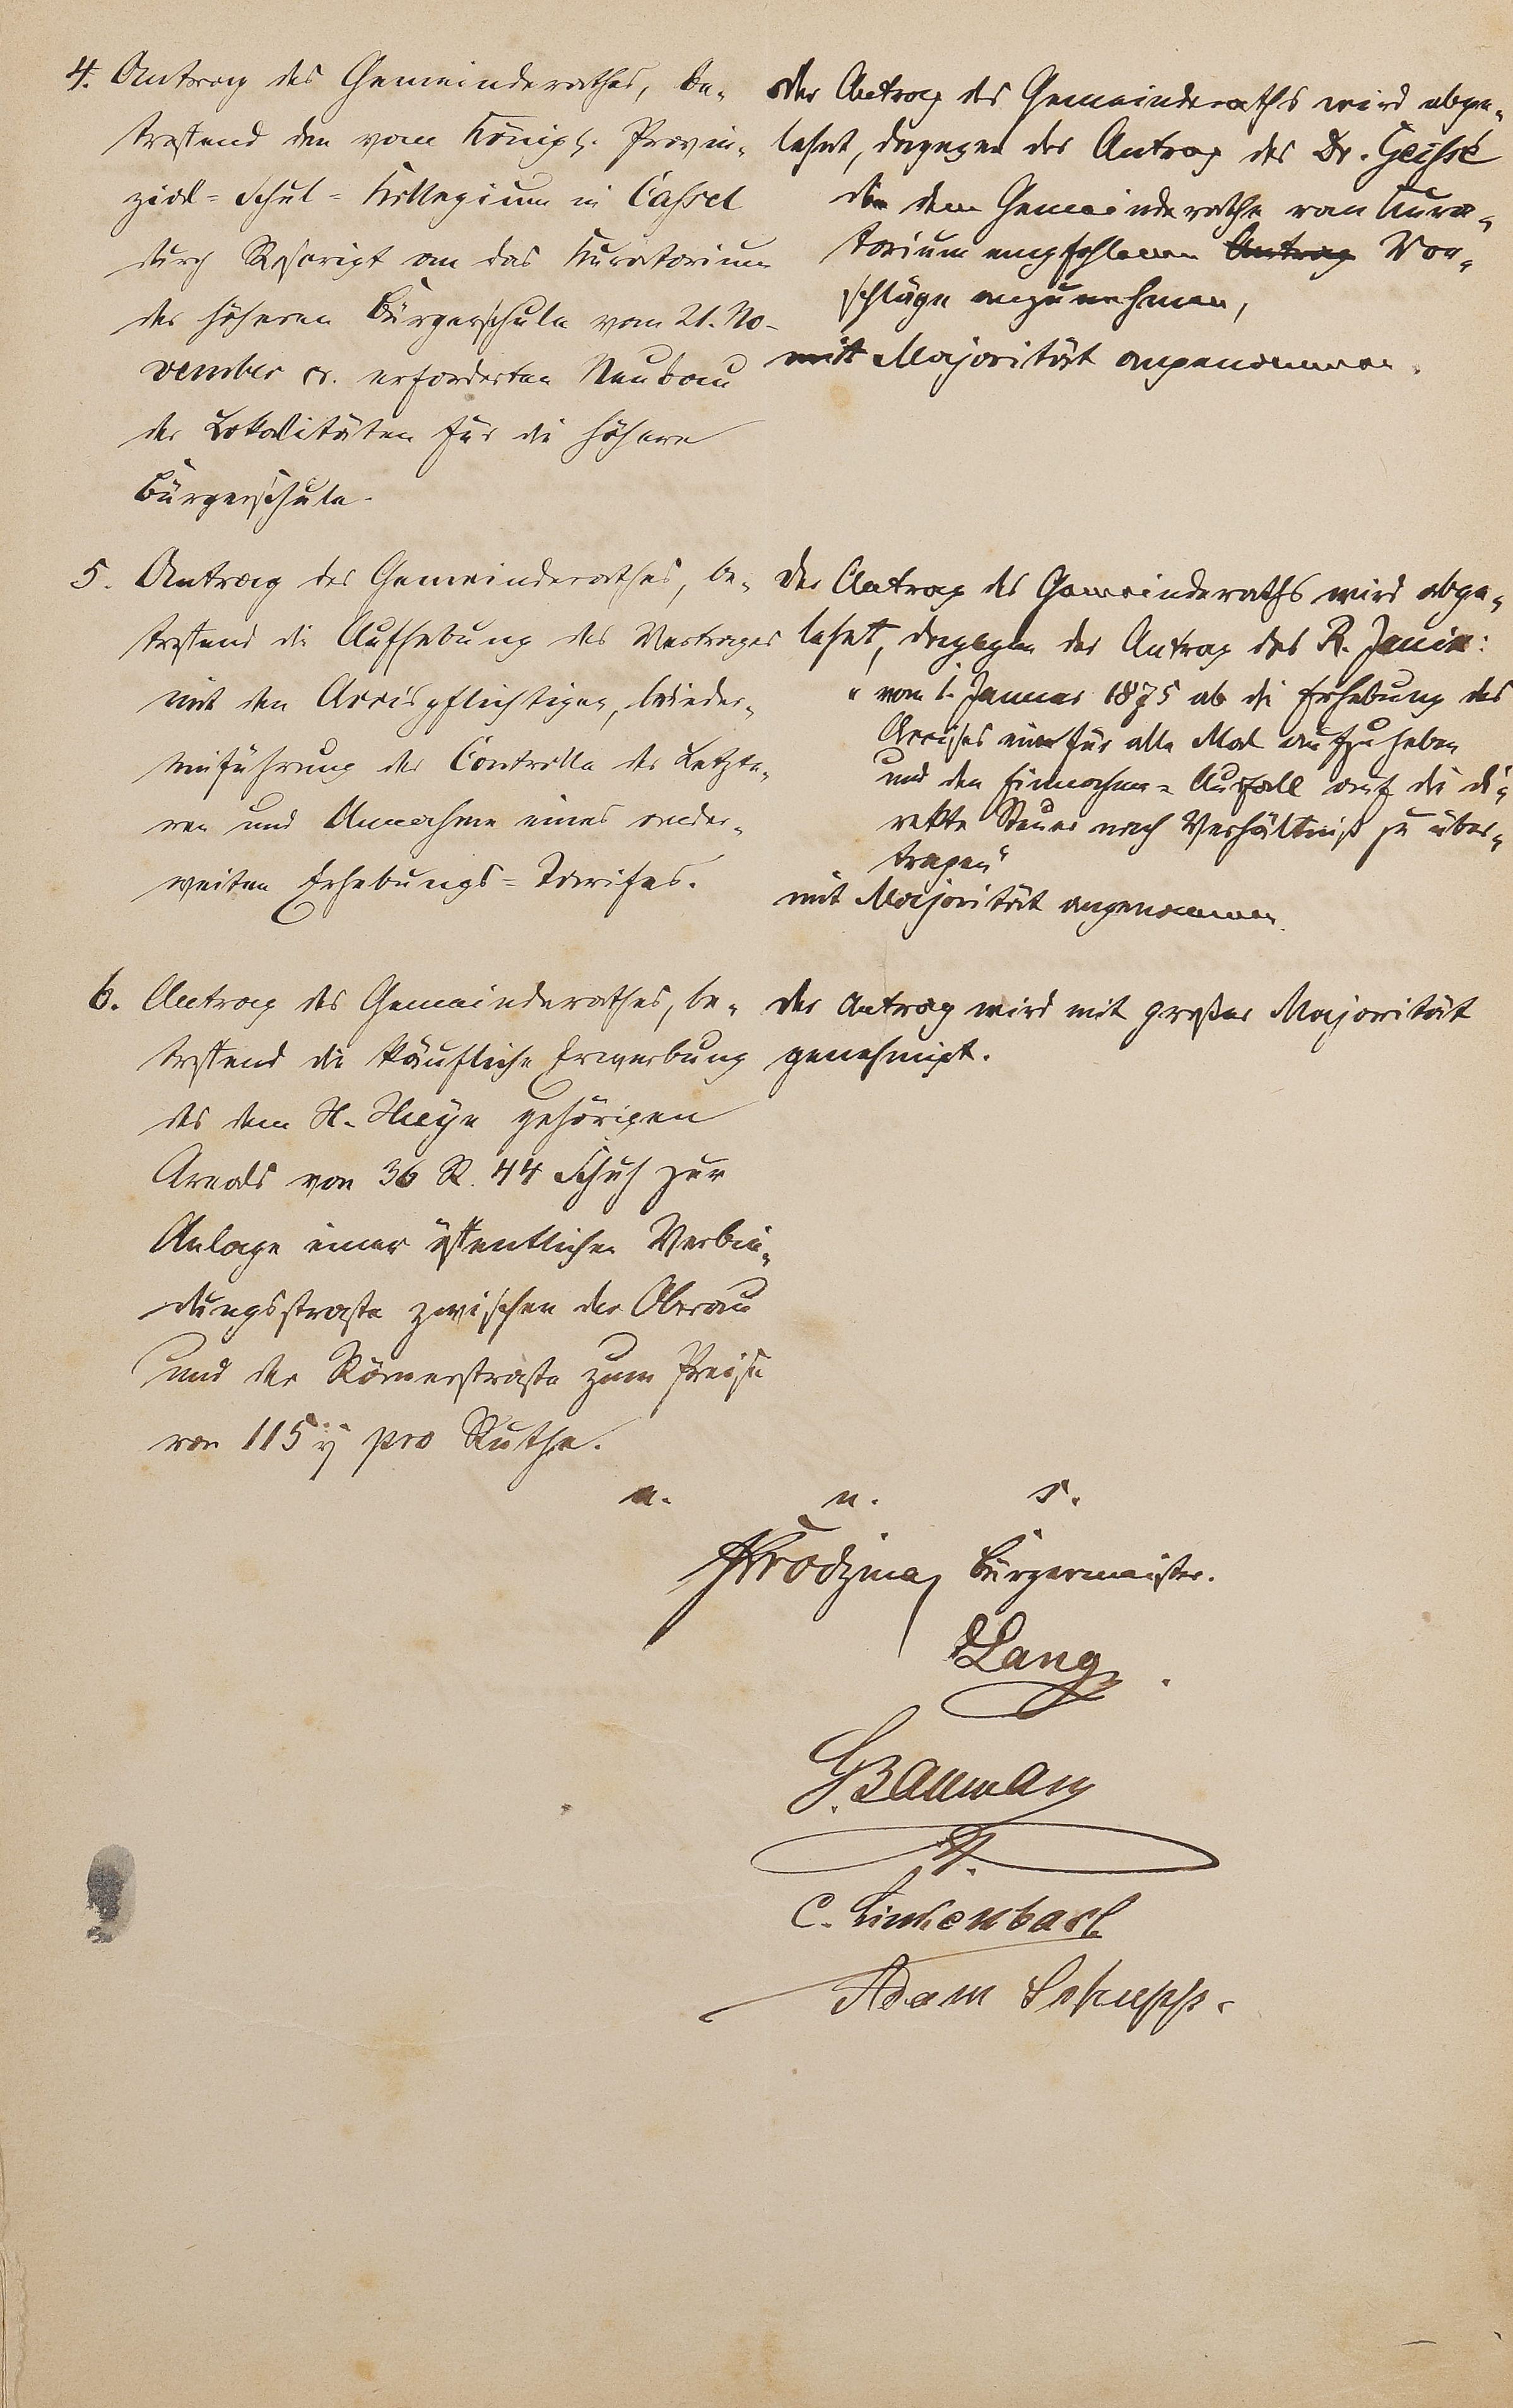 4. Antrag des Gemeinderathes, be-
treffend den vom Königl. Provin-
zial-Schul-Kollegium in Cassel
durch Rescript an das Kuratorium
der höheren Bürgerschule vom 21. No-
vember cr. erforderten Neubau
der Lokalitäten für die höhere
Bürgerschule.
der Antrag des Gemeinderaths wird abge-
lehnt, dagegen der Antrag des Dr. Geisse
die dem Gemeinderathe vom Kura-
torium empfohlenen Antrag Vor-
schläge anzunehmen,
mit Majorität angenommen.
5. Antrag des Gemeinderathes, be-
treffend die Aufhebung des Vertrages
mit den Accispflichtigen, Wieder-
einführung der Controlle der Letzte-
ren und Annahme eines ander-
weiten Erhebungs-Tarifes.
Der Antrag des Gemeinderaths wird abge-
lehnt, dagegen der Antrag des R. Janin:
"vom 1. Januar 1875 ab die Erhebung des
Accises ein für alle Mal aufzuheben
und den Einnahme-Ausfall auf die di-
rekte Steuer nach Verhältniß zu über-
tragen"
mit Majorität angenommen.
6. Antrag des Gemeinderathes, be-
treffend die käufliche Erwerbung
des dem H. gehörigen
Areals von 36 R. 44 Schuh zur
Anlage einer öffentlichen Verbin-
dungsstraße zwischen der Oberau
und der Römerstraße zum Preise
von 115 pro Ruthe.
der Antrag wird mit großer Majorität
genehmigt.
a. u. s.
Bürgermeister.
Lang
G. Baumann
C. Linkenbach
Adam Schupp.